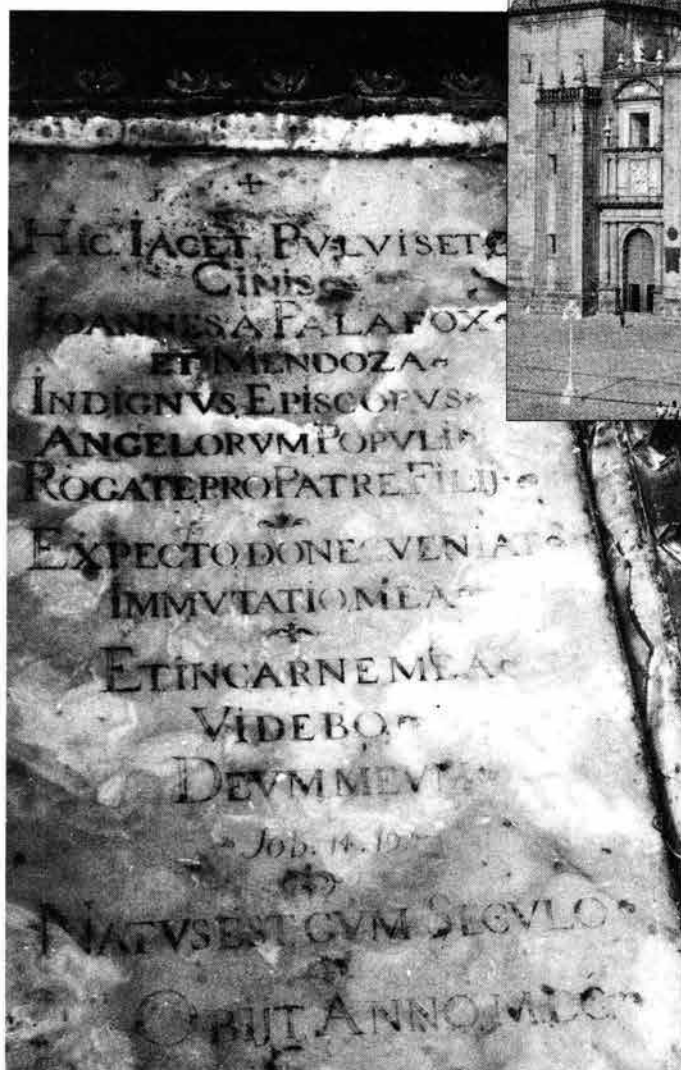 HIC IACET PVLVIS ET
CINIS
IOANNES A PALAFOX
ET MENDOZA
INDIGNVS EPISCOPVS
ANGELORVM POPVLI
ROGATE PRO PATRE FILIJ
EXPECTO DONEC VENIAT
IMMVTATIO MEA
ET IN CARNE MEA
VIDEBO
DEVM MEVM
Job. 14.
NATVS EST CVM SECVLO
OBIJT ANNO